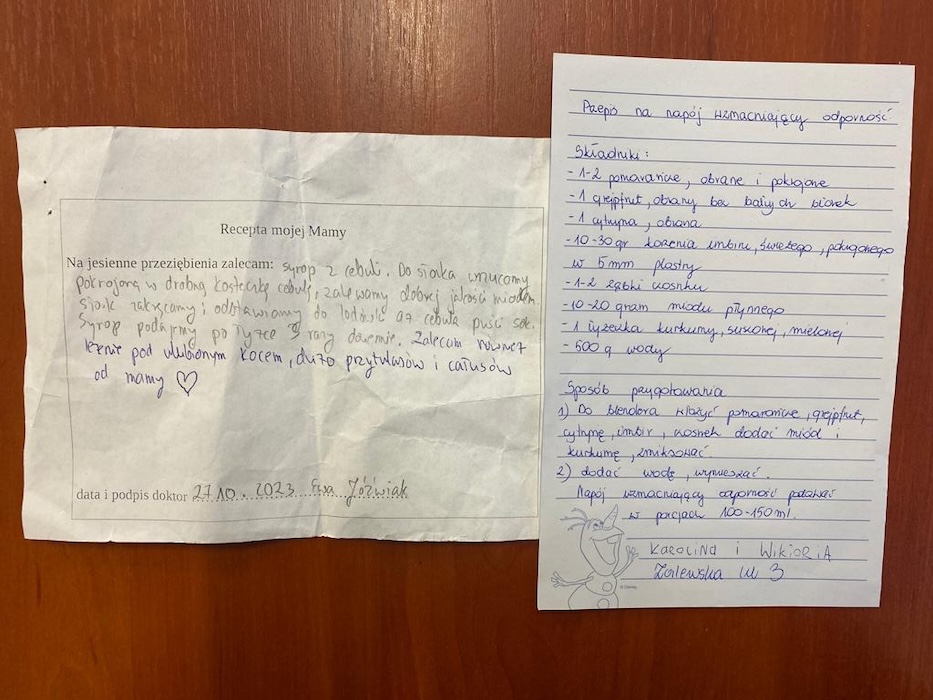 Recepta mojej Mamy
Na jesienne przeziębienia zalecam: syrop z cebuli. Do słoika wrzucamy
pokrojoną w drobną kosteczkę cebulę, zalewamy dobrej jakości miodem
słoik zakręcamy i odstawiamy do lodówki aż cebula puści sok.
Syrop podajemy po łyżce 3 razy dziennie. Zalecam również
leżenie pod ulubionym kocem, dużo przytulasów i całusów
od mamy ♡
data i podpis doktor 27.10.2023 Ewa Jóźwiak
Przepis na napój wzmacniający odporność
Składniki:
- 1-2 pomarańcze, obrane i pokrojone
- 1 grejpfrut, obrany bez białych błonek
- 1 cytryna, obrana
- 10-30 gr korzenia imbiru, świeżego, pokrojonego
w 5mm plastry
- 1-2 ząbki czosnku
- 10-20 gram miodu płynnego
- 1 łyżeczka kurkumy, suszonej, mielonej
- 500 g wody
Sposób przygotowania
1) Do blendera włożyć pomarańcze, grejpfrut,
cytrynę, imbir, czosnek dodać miód i
kurkumę, zmiksować
2) dodać wodę, wymieszać.
Napój wzmacniający odporność podawać
w porcjach 100-150 ml.
KAROLINA i WIKTORIA
Zalewska kl 3
© Disney